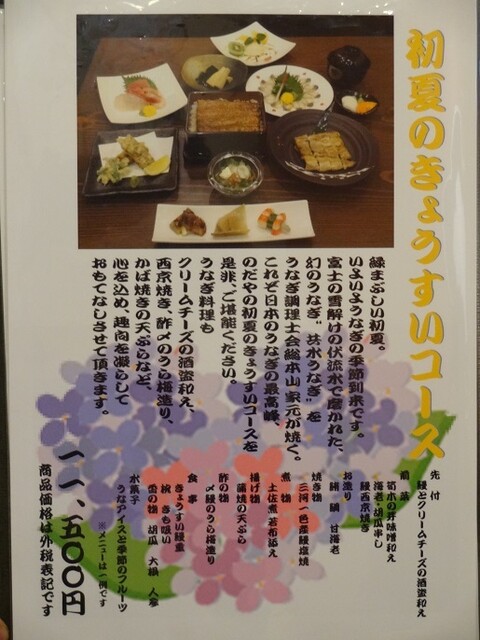 初夏のきょうすいコース
緑まぶしい初夏。
いよいようなぎの季節到来です。
富士の雪解けの伏流水で磨かれた、
幻のうなぎ〝共水うなぎ〟を
うなぎ調理士会総本山家元が焼く。
これぞ日本のうなぎの最高峰、
のだやの初夏のきょうすいコースを
是非、ご堪能ください。
うなぎ料理も
クリームチーズの酒盗和え、
西京焼き、酢〆のうら梅造り、
かば焼きの天ぷらなど、
心を込め、趣向を凝らして
おもてなしさせて頂きます。
先付
鰻とクリームチーズの酒盗和え
前菜
筍木の芽味噌和え
海老・胡瓜串し
鰻西京焼き
お造り
鯛 甘海老
焼き物
三河一色産鰻塩焼
煮物
土佐煮若布添え
揚げ物
蒲焼の天ぷら
酢の物
〆鰻のうら梅造り
食事
きょうすい鰻重
椀 きも吸い
香の物 胡瓜 大根 人参
水菓子
うなアイスと季節のフルーツ
※メニューは一例です
一一、五〇〇円
商品価格は外税表記です